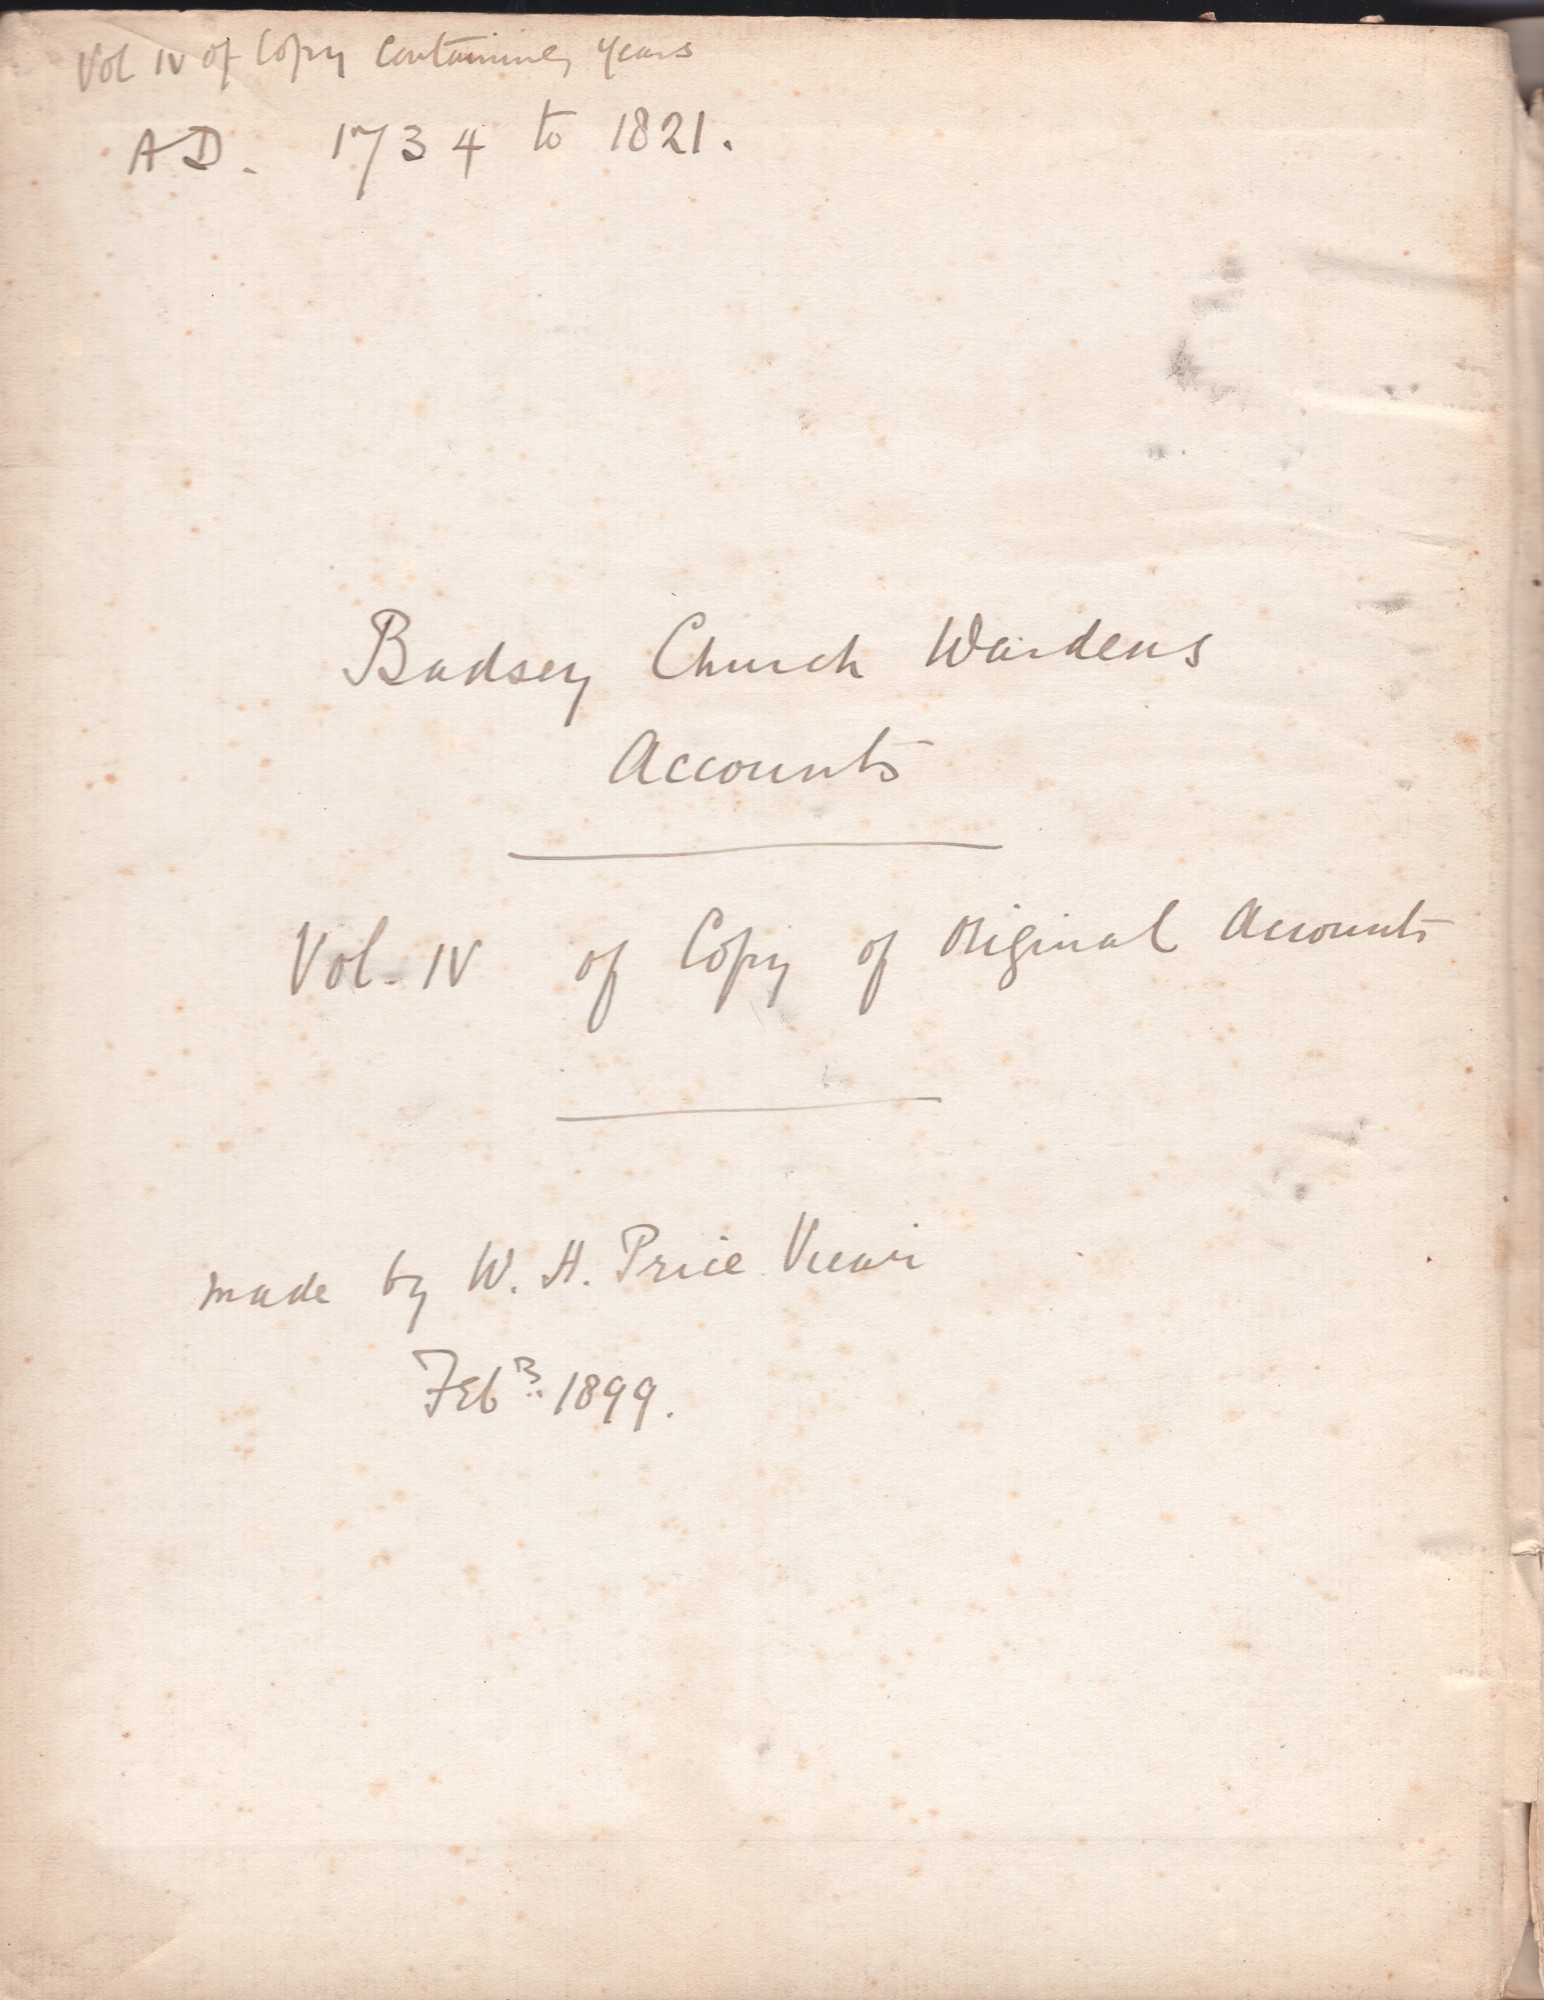 Vol IV of Copy containing years
A.D. 1734 to 1821.
Badsey Church Wardens
Accounts
Vol. IV of Copy of Original Accounts
made by W. H. Price Vicar
Feb 1899.